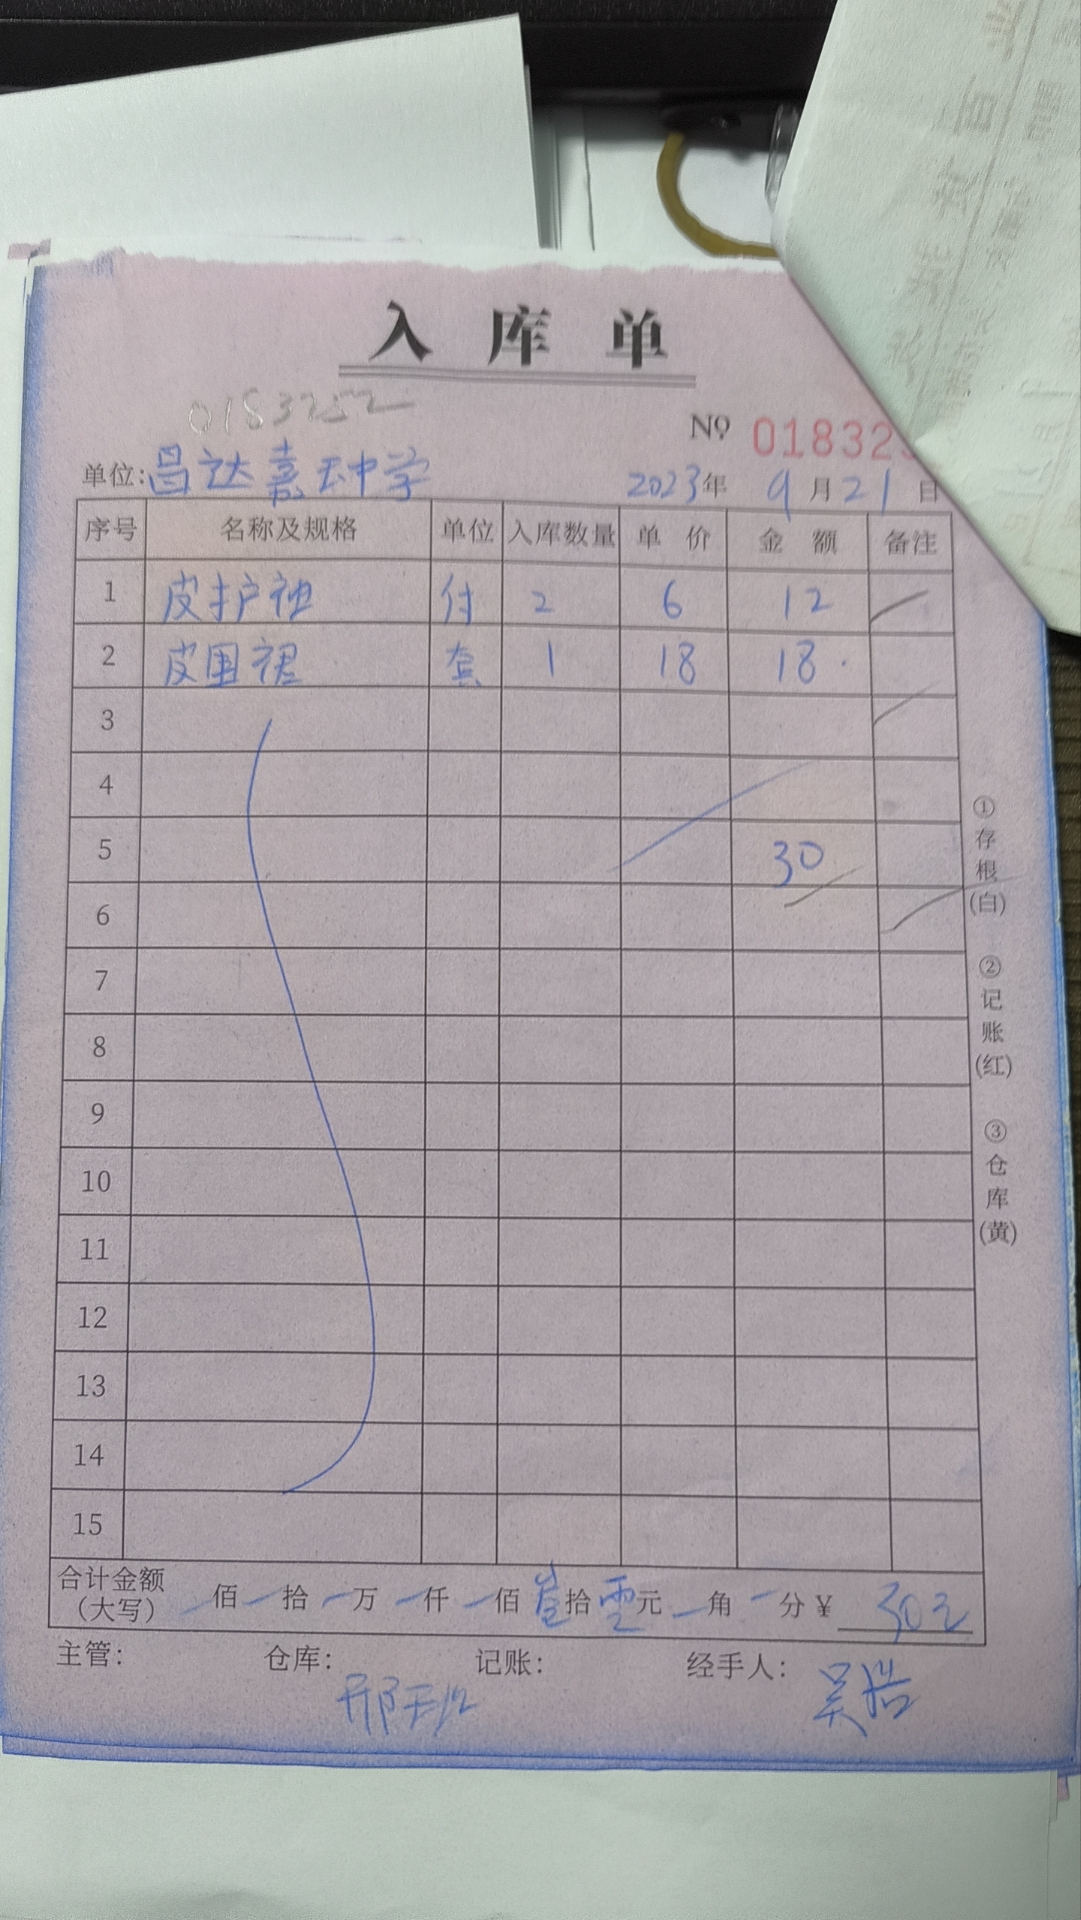 入库单
0183252
№ 01832
单位:昌达嘉玉中学 2023年 9月21日
序号 名称及规格 单位 入库数量 单价 金额 备注
1 皮护袖 付 2 6 12
2 皮围裙 套 1 18 18.
3
4
5 30
6
7
8
9
10
11
12
13
14
15
合计金额
（大写） 佰 拾 万 仟 佰 叁拾零元 角 分 ¥ 30元
主管: 仓库: 记账: 经手人: 吴浩
①存根(白)
②记账(红)
③仓库(黄)